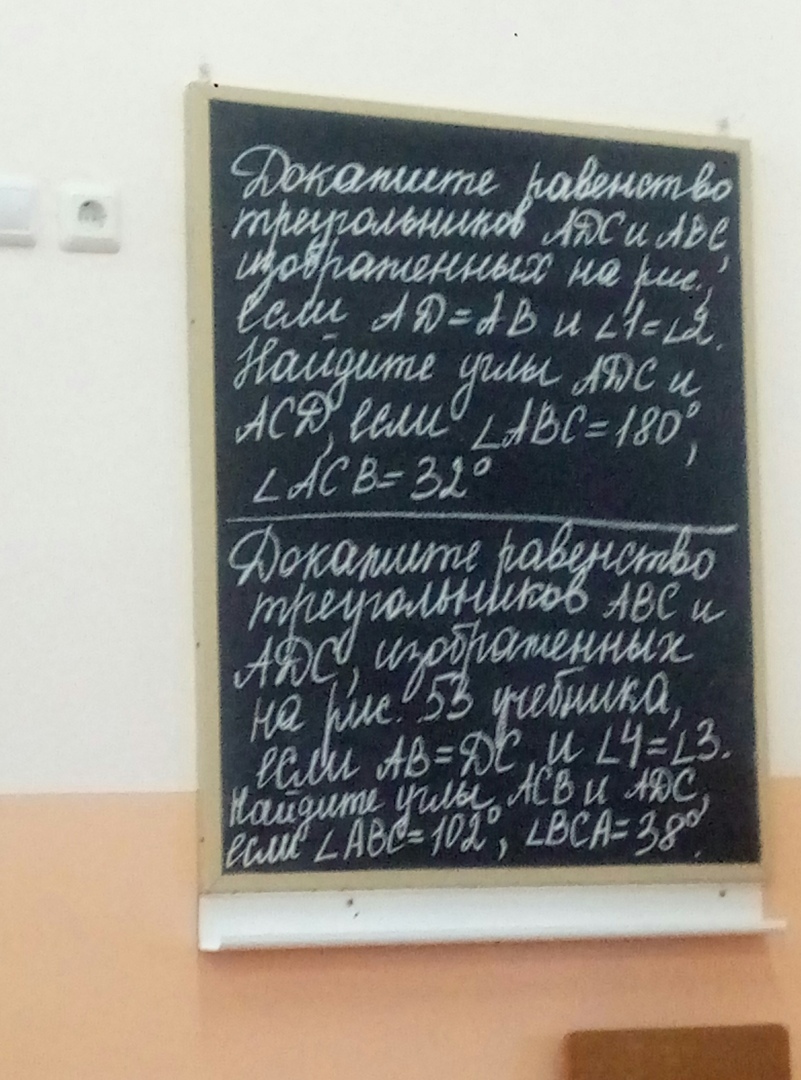 Докажите равенство
треугольников ADC и ABC,
изображенных на рис.,
если AD=AB и ∠1=∠2.
Найдите углы ADC и
ACD, если ∠ABC=180°,
∠ACB=32°
Докажите равенство
треугольников ABC и
ADC, изображенных
на рис. 53 учебника,
если AB=DC и ∠4=∠3.
Найдите углы ACB и ADC,
если ∠ABC=102°, ∠BCA=38°.